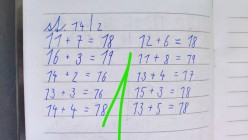 str. 14 / 2
11 + 7 = 18
16 + 3 = 19
14 + 2 = 16
13 + 3 = 16
14 + 4 = 18
12 + 6 = 18
11 + 8 = 19
13 + 4 = 17
15 + 3 = 18
13 + 5 = 18